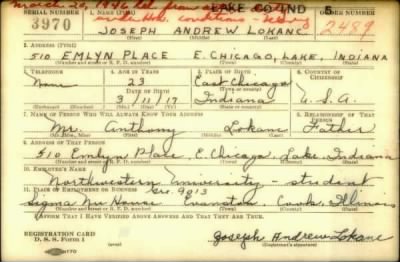 March 20, 1946
LAKE CO IND 5
SERIAL NUMBER 1. NAME (Print) ORDER NUMBER
3970 JOSEPH ANDREW LOKANC 2489
(First) (Middle) (Last)
2. ADDRESS (Print)
510 EMLYN PLACE E. CHICAGO, LAKE, INDIANA
(Number and street or R. F. D. number) (Town) (County) (State)
3. TELEPHONE 4. AGE IN YEARS 5. PLACE OF BIRTH 6. COUNTRY OF CITIZENSHIP
None 23 East Chicago
DATE OF BIRTH
3 11 17 Indiana U.S.A.
7. NAME OF PERSON WHO WILL ALWAYS KNOW YOUR ADDRESS 8. RELATIONSHIP OF THAT PERSON
Mr. Anthony Lokanc Father
9. ADDRESS OF THAT PERSON
510 Emlyn Place, E. Chicago, Lake, Indiana
(Number and street or R. F. D. number) (Town) (County) (State)
10. EMPLOYER'S NAME
Northwestern University - student
11. PLACE OF EMPLOYMENT OR BUSINESS Gre. 9013
Sigma Nu House Evanston, Cook, Illinois
(Number and street or R. F. D. number) (Town) (County) (State)
I AFFIRM THAT I HAVE VERIFIED ABOVE ANSWERS AND THAT THEY ARE TRUE.
REGISTRATION CARD
D. S. S. Form 1 Joseph Andrew Lokanc
(Registrant's signature)